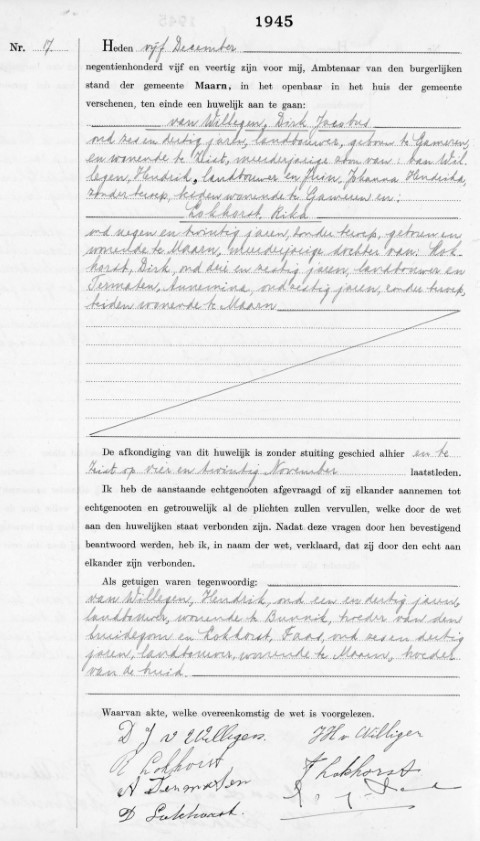 1945
Nr. 17
Heden vijf December
negentienhonderd vijf en veertig zijn voor mij, Ambtenaar van den burgerlijken
stand der gemeente Maarn, in het openbaar in het huis der gemeente
verschenen, ten einde een huwelijk aan te gaan:
van Willegen, Dirk Jacobus
oud zes en dertig jaren, landbouwer, geboren te Gameren,
en wonende te Zeist, meerderjarige zoon van: van Wil-
legen, Hendrik, landbouwer en Johanna Hendrika,
zonder beroep, beiden wonende te Gameren en:
Lokhorst, Rika
oud negen en twintig jaren, zonder beroep, geboren en
wonende te Maarn, meerderjarige dochter van: Lok-
horst, Dirk, oud drie en zestig jaren, landbouwer en
Termaten, Annemina, oud zestig jaren, zonder beroep,
beiden wonende te Maarn
De afkondiging van dit huwelijk is zonder stuiting geschied alhier en te
Zeist op vier en twintig November laatstleden.
Ik heb de aanstaande echtgenooten afgevraagd of zij elkander aannemen tot
echtgenooten en getrouwelijk al de plichten zullen vervullen, welke door de wet
aan den huwelijken staat verbonden zijn. Nadat deze vragen door hen bevestigend
beantwoord werden, heb ik, in naam der wet, verklaard, dat zij door den echt aan
elkander zijn verbonden.
Als getuigen waren tegenwoordig:
van Willegen, Hendrik, oud een en dertig jaren,
landbouwer, wonende te Bunnik, broeder van den
bruidegom en Lokhorst, Faas, oud zes en dertig
jaren, landbouwer, wonende te Maarn, broeder
van de bruid.
Waarvan akte, welke overeenkomstig de wet is voorgelezen.
D J v Willegen H v Willigen
R Lokhorst
F Lokhorst
A Termaten
D Lokhorst.